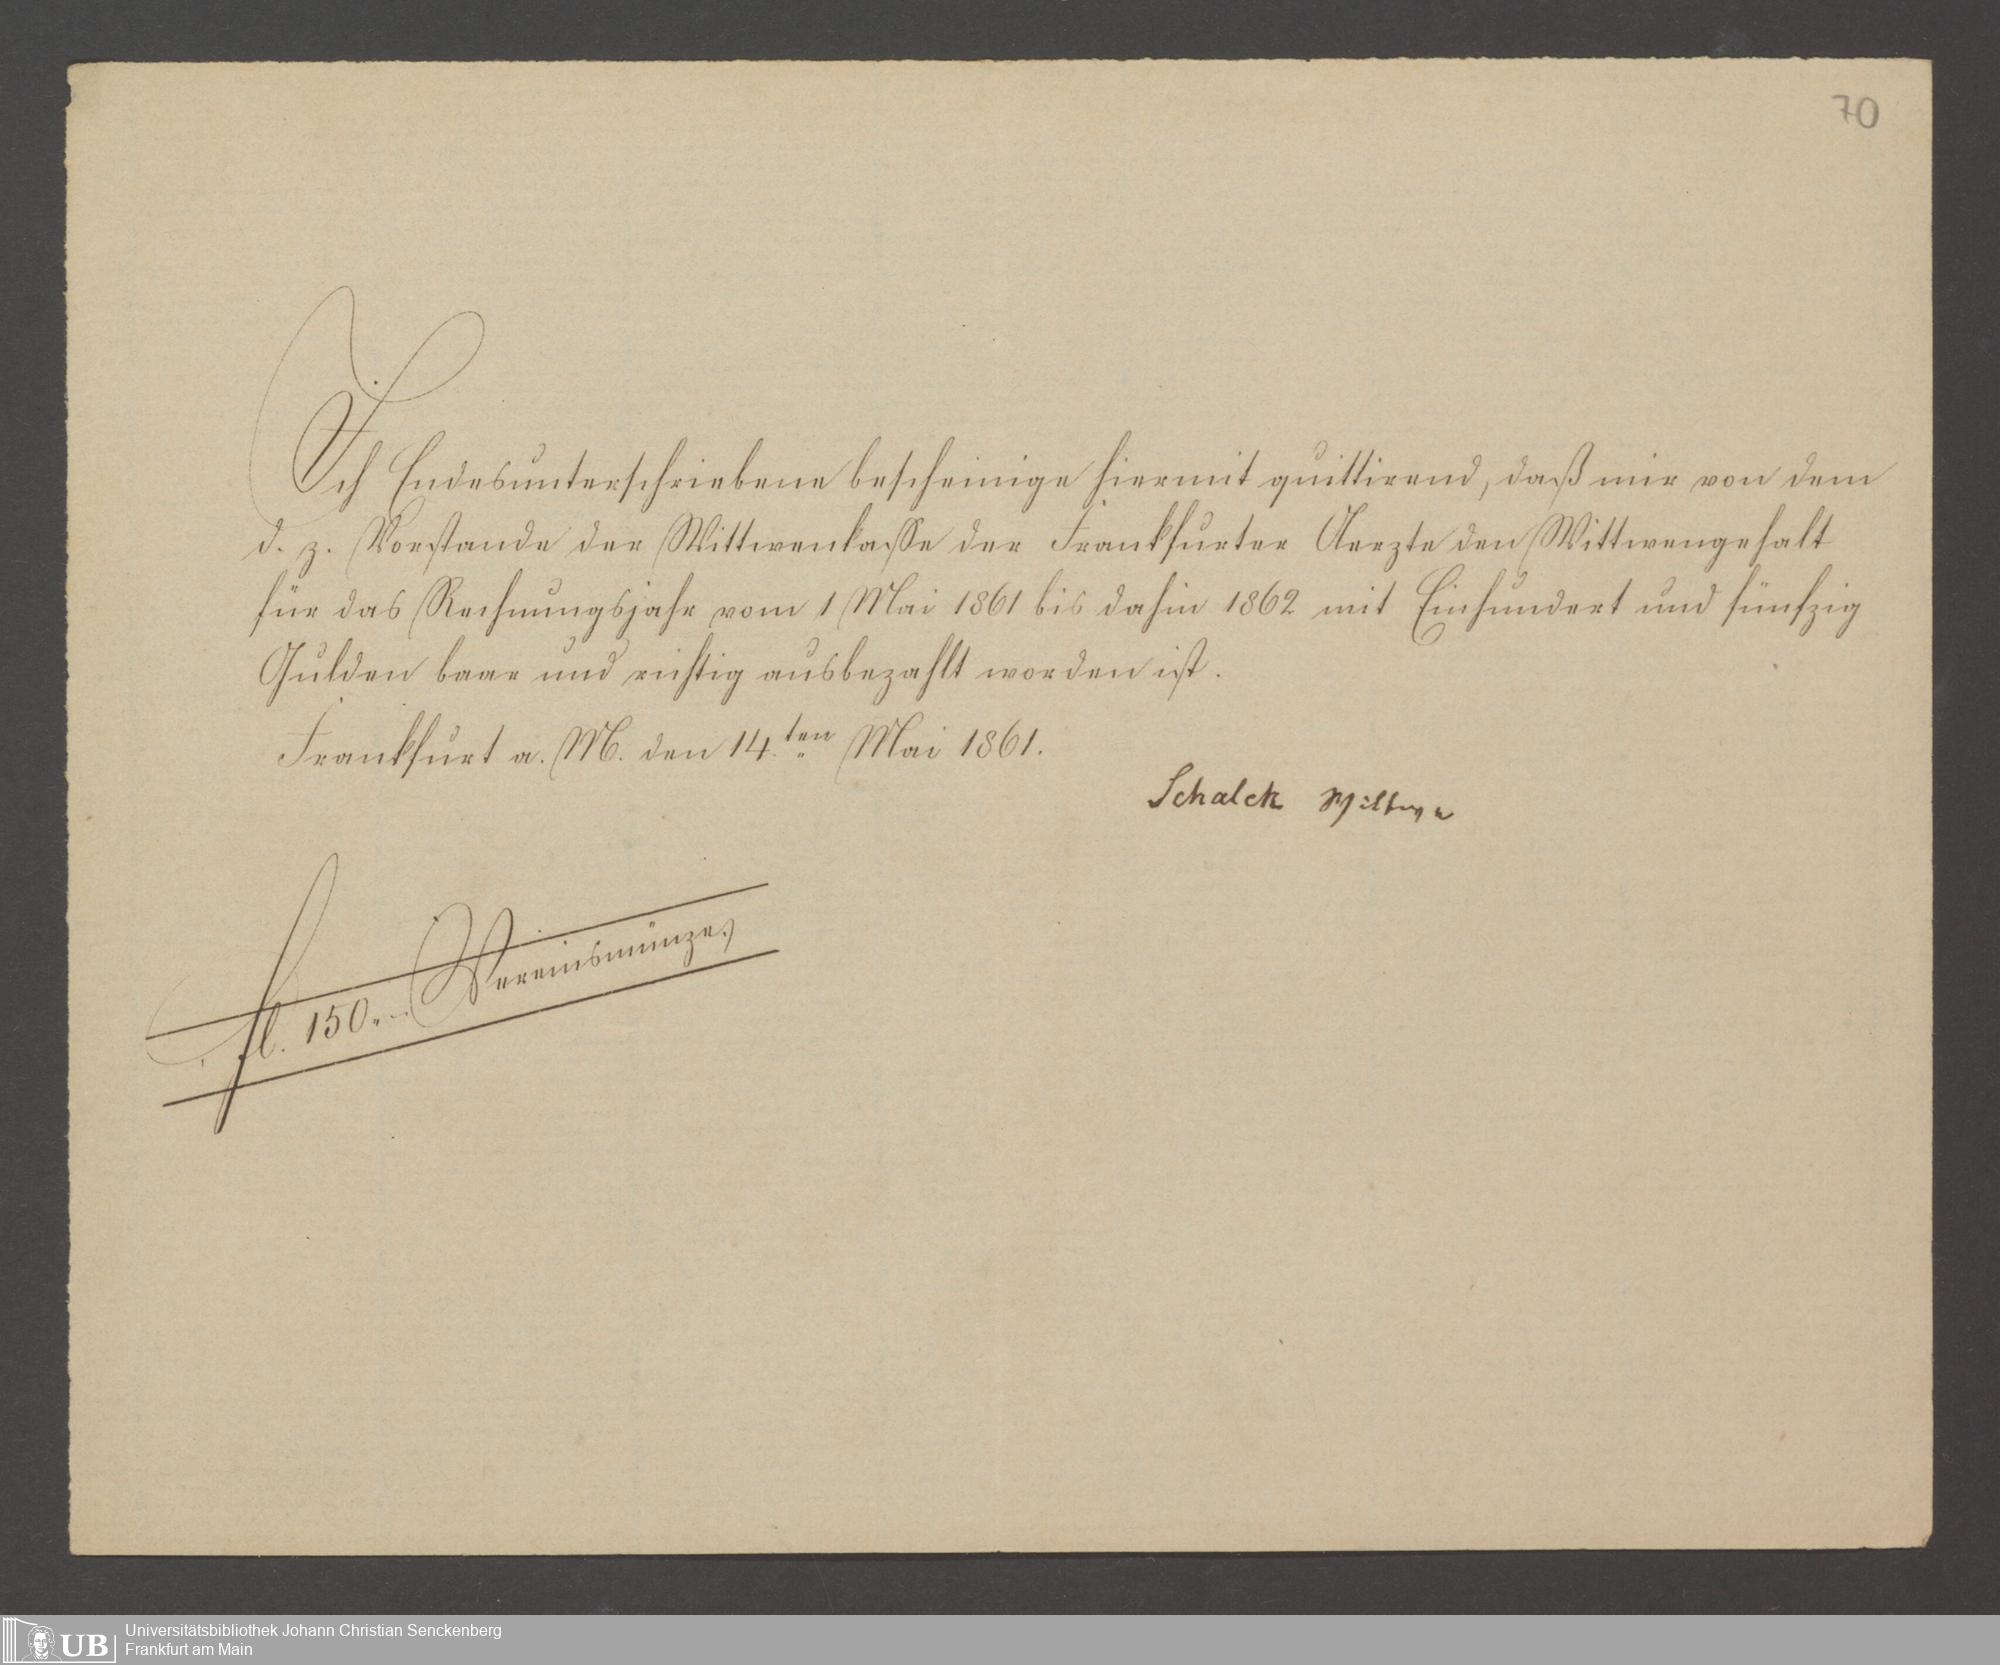 70
Ich Endesunterschriebene bescheinige hiermit quittirend, daß mir von dem
d. z. Vorstande der Wittwenkasse der Frankfurter Aerzte den Wittwengehalt
für das Rechnungsjahr vom 1 Mai 1861 bis dahin 1862 mit Einhundert und fünfzig
Gulden baar und richtig ausbezahlt worden ist.
Frankfurt a. M. den 14.ten Mai 1861.
Schalck Wittwe
fl. 150.,–. Vereinsmünze.
UB Universitätsbibliothek Johann Christian Senckenberg
Frankfurt am Main